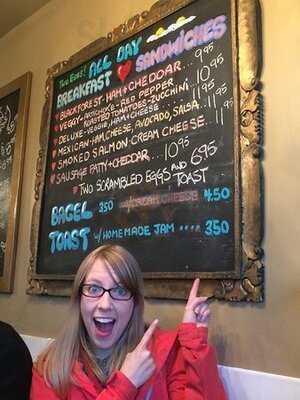 Two Eggs! ALL DAY
BREAKFAST SANDWICHES
BLACKFOREST-HAM+CHEDDAR... 9.95
VEGGY-ARTICHOKE-RED PEPPER
ROASTED TOMATOES-ZUCCHINI 10.95
DELUXE-VEGGIE, HAM+CHEESE... 11.95
MEXICAN-HAM, CHEESE, AVOCADO, SALSA.. 11.95
SMOKED SALMON-CREAM CHEESE.. 11.95
SAUSAGE PATTY+CHEDDAR... 10.95
TWO SCRAMBLED EGGS AND TOAST 6.95
BAGEL 350 w/CREAM CHEESE 4.50
TOAST w/HOMEMADE JAM .... 350